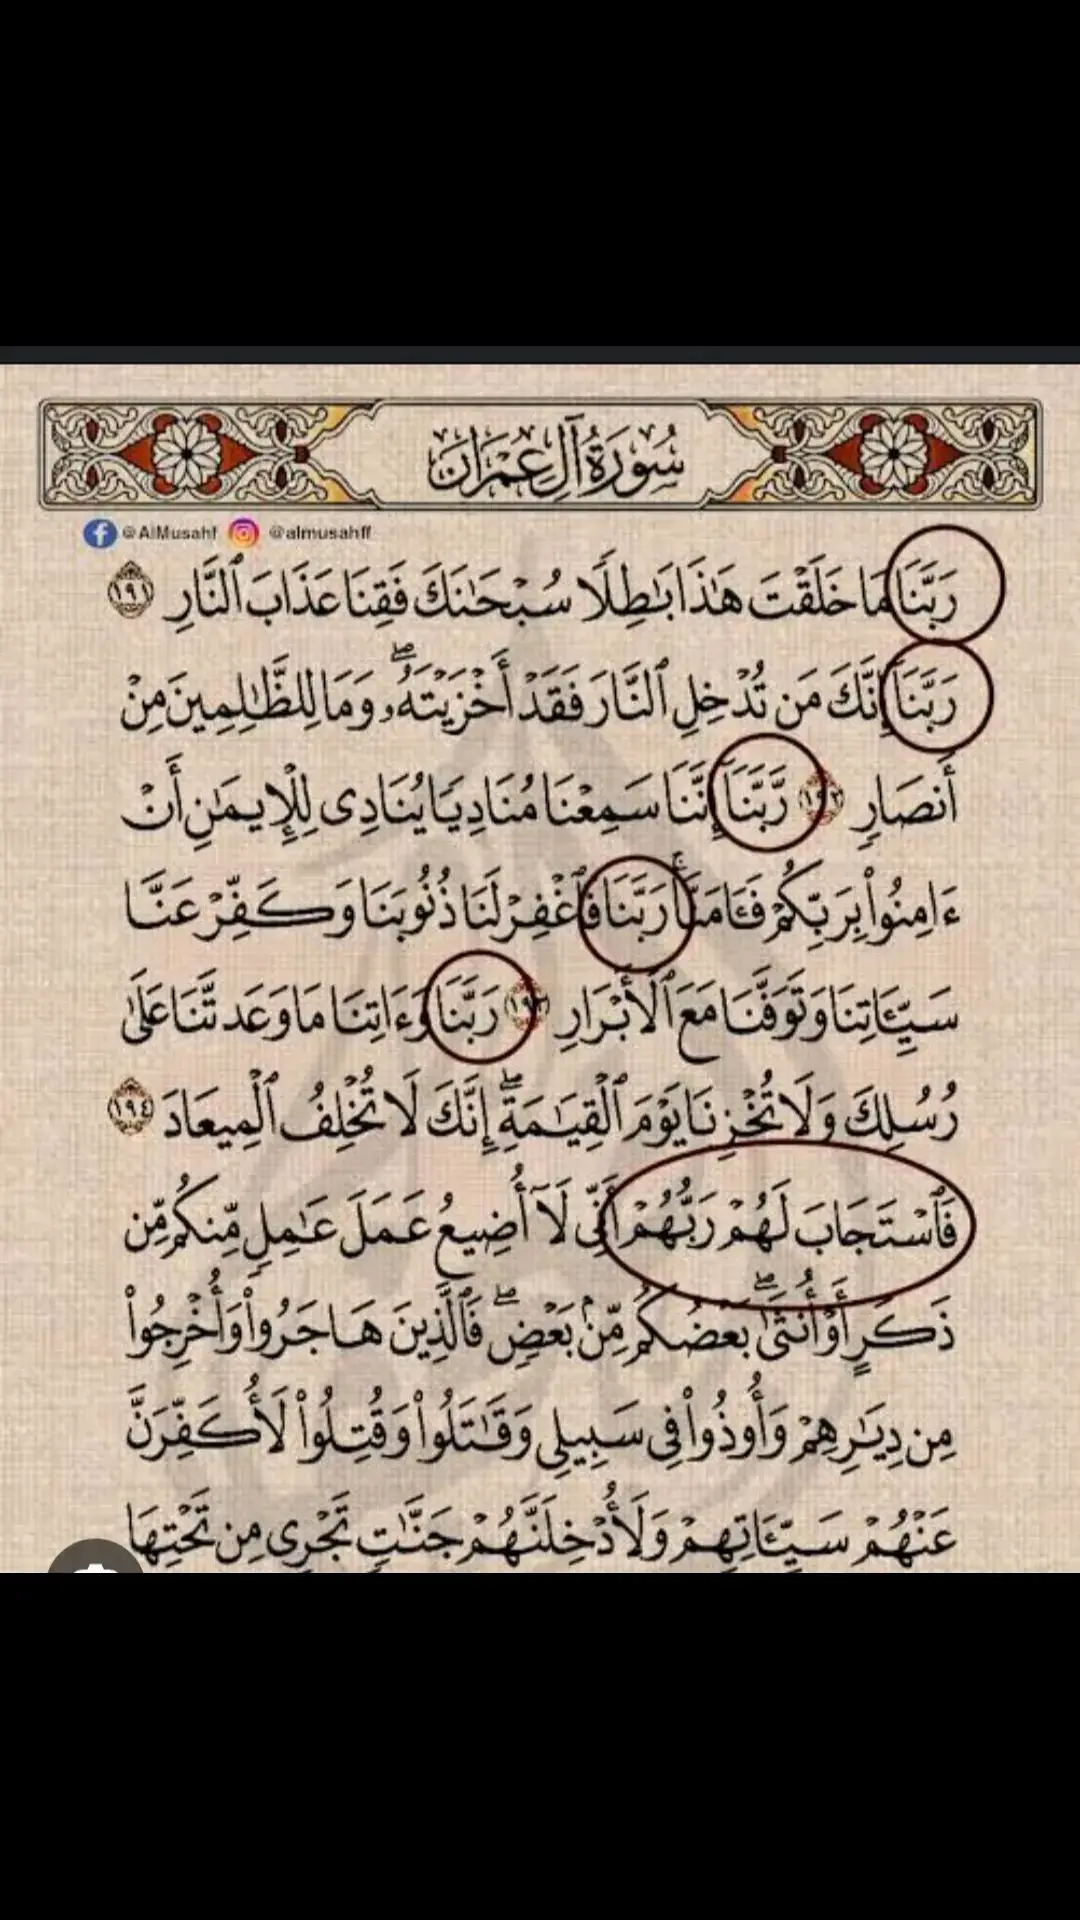 سُورَةُ آلِ عِمۡرَانَ
@AlMusahf @almusahff
رَبَّنَا مَا خَلَقۡتَ هَٰذَا بَٰطِلٗا سُبۡحَٰنَكَ فَقِنَا عَذَابَ ٱلنَّارِ ١٩١
رَبَّنَآ إِنَّكَ مَن تُدۡخِلِ ٱلنَّارَ فَقَدۡ أَخۡزَيۡتَهُۥۖ وَمَا لِلظَّٰلِمِينَ مِنۡ
أَنصَارٖ ١٩٢ رَّبَّنَآ إِنَّنَا سَمِعۡنَا مُنَادِيٗا يُنَادِي لِلۡإِيمَٰنِ أَنۡ
ءَامِنُواْ بِرَبِّكُمۡ فَـَٔامَنَّاۚ رَبَّنَا فَٱغۡفِرۡ لَنَا ذُنُوبَنَا وَكَفِّرۡ عَنَّا
سَيِّـَٔاتِنَا وَتَوَفَّنَا مَعَ ٱلۡأَبۡرَارِ ١٩٣ رَبَّنَا وَءَاتِنَا مَا وَعَدتَّنَا عَلَىٰ
رُسُلِكَ وَلَا تُخۡزِنَا يَوۡمَ ٱلۡقِيَٰمَةِۖ إِنَّكَ لَا تُخۡلِفُ ٱلۡمِيعَادَ ١٩٤
فَٱسۡتَجَابَ لَهُمۡ رَبُّهُمۡ أَنِّي لَآ أُضِيعُ عَمَلَ عَٰمِلٖ مِّنكُم مِّن
ذَكَرٍ أَوۡ أُنثَىٰۖ بَعۡضُكُم مِّنۢ بَعۡضٖۖ فَٱلَّذِينَ هَاجَرُواْ وَأُخۡرِجُواْ
مِن دِيَٰرِهِمۡ وَأُوذُواْ فِي سَبِيلِي وَقَٰتَلُواْ وَقُتِلُواْ لَأُكَفِّرَنَّ
عَنۡهُمۡ سَيِّـَٔاتِهِمۡ وَلَأُدۡخِلَنَّهُمۡ جَنَّٰتٖ تَجۡرِي مِن تَحۡتِهَا